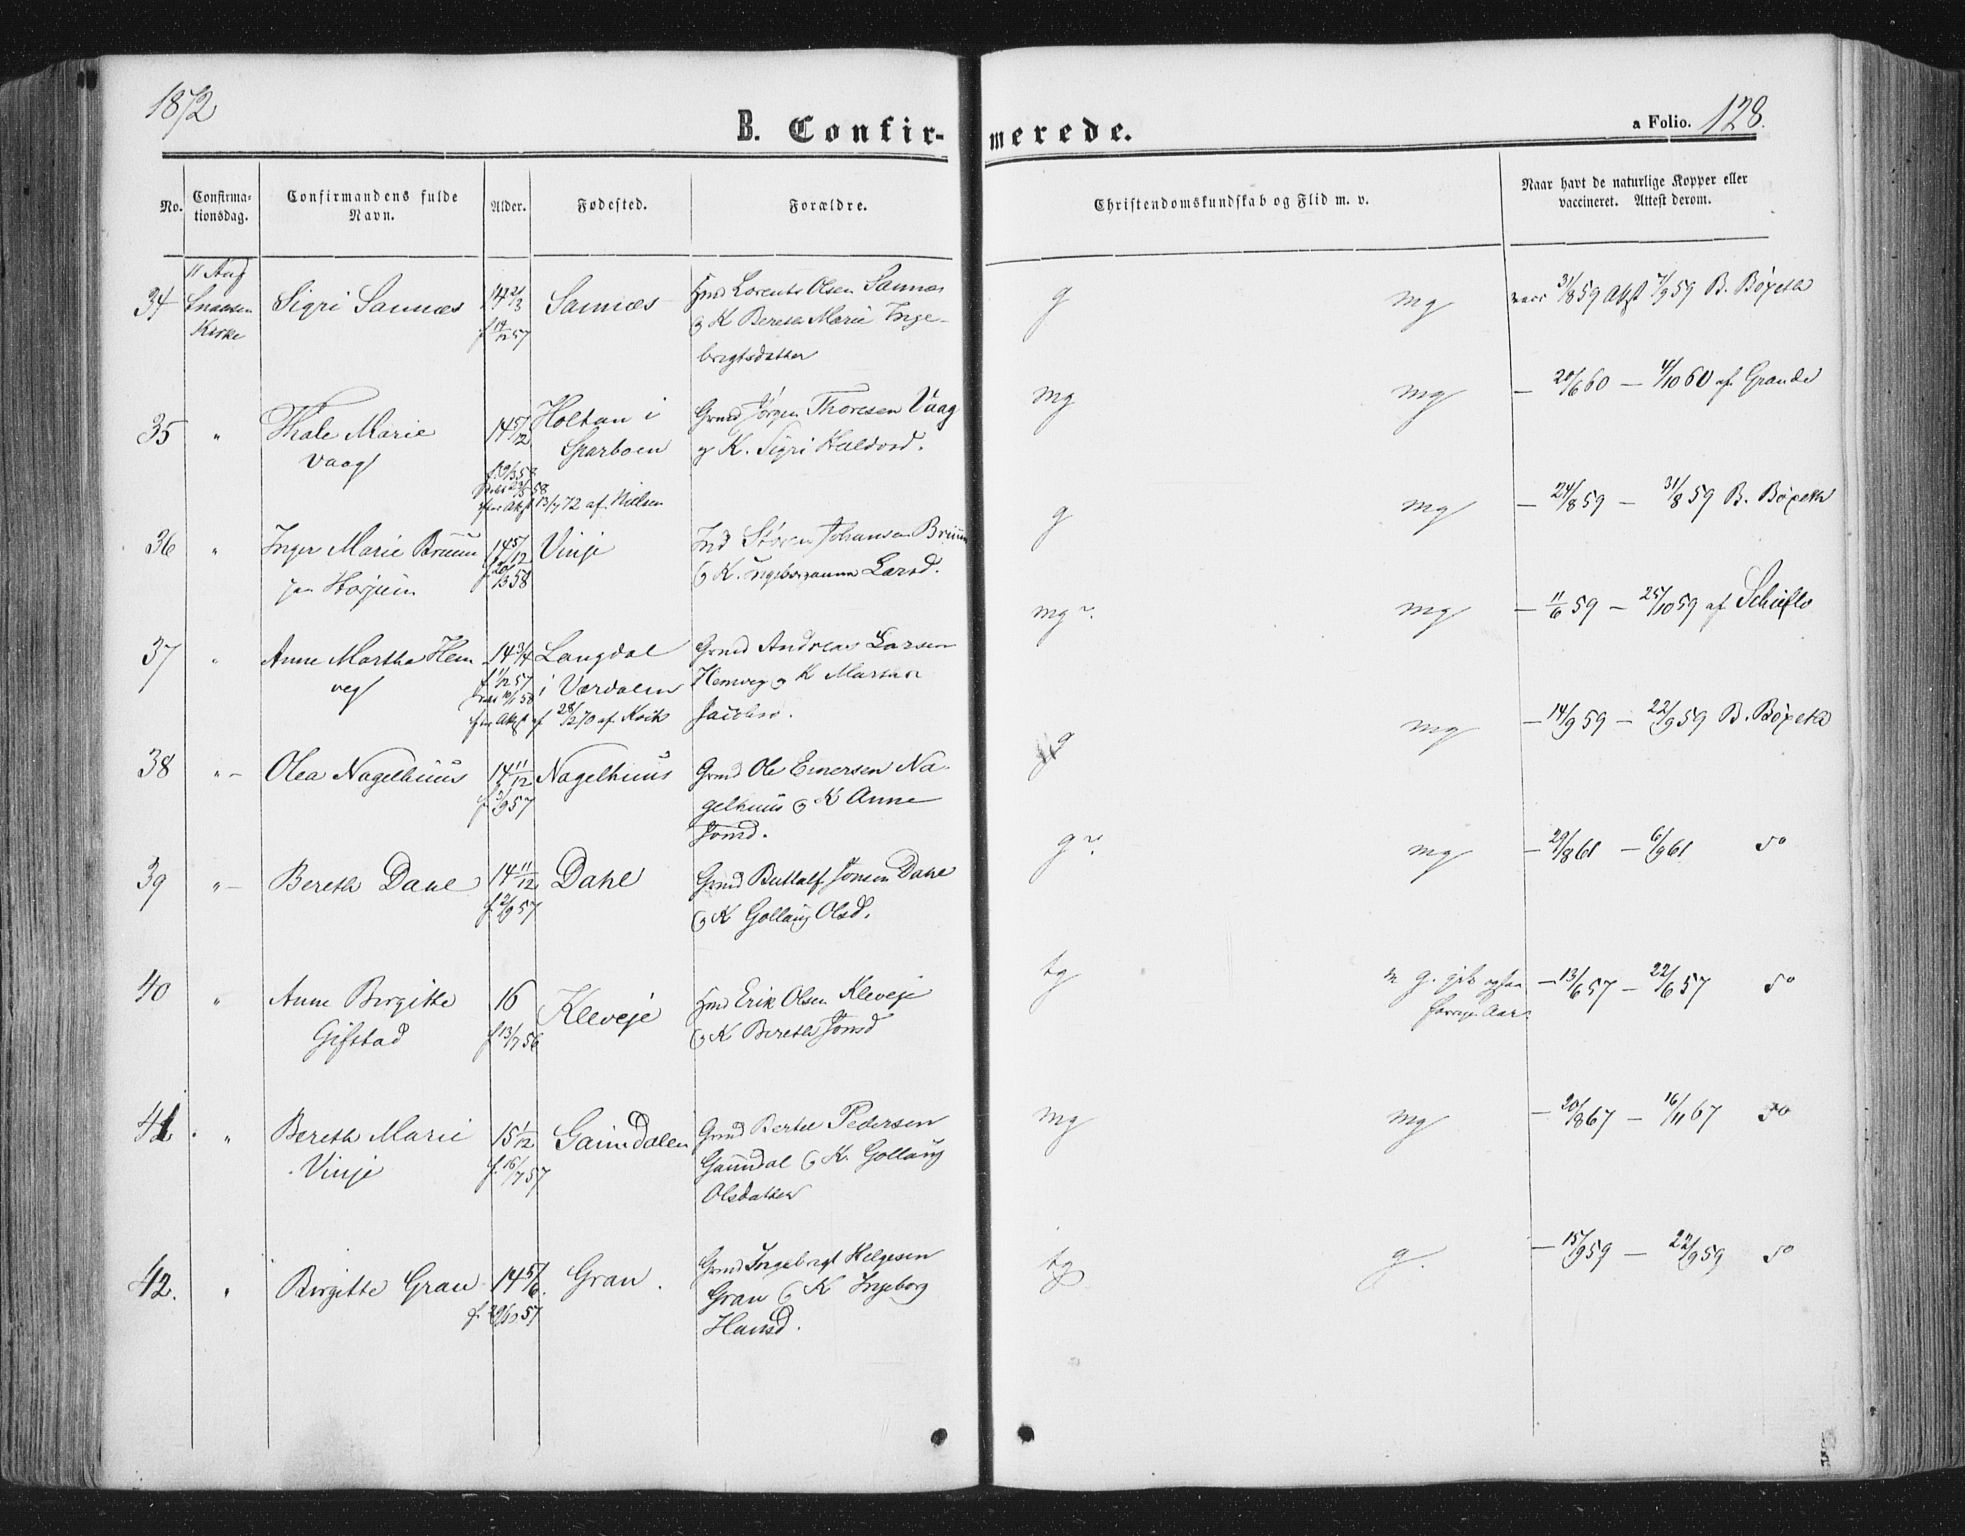 1872
B. Confirmerede.
a Folio. 128.
No.
Confirmationsdag.
Confirmandens fulde Navn.
Alder.
Fødested.
Forældre.
Christendomskundskab og Flid m. v.
Naar havt de naturlige Kopper eller vaccineret. Attest derom.
34 11 Aug Snaasen Kirke
Sigri Sannæs
14 2/3
57
Sannæs
Lorents Olsen Sannæs
& K Bereth Marie Inge-
brigtsdatter
g mg
vacc 31/8 59 Attst 7/9 59 B. Bøgeth
35 "
Thale Marie
Vaag
14 5/12
Holtan i
Sparboen
Grmd Jørgen Thoresen Vaag
& K. Sigri Haldord.
mg mg
— 20/6 60 — 4/10 60 af Grande
13/7 72 af Nielsen
36 "
Inger Marie Bruun
Horjem
14 5/12
58
Vinje
Søren Johansen Bruun
& K. Larsd.
g mg
— 24/8 59 — 31/8 59 B. Bøgeth
37 "
Anne Martha Hem
veg
14 3/4
Langdal
i Værdalen
28/2 70 af
Grmd Andreas Larsen
Hemveg & K Martha
Jacobs.
mg mg
— 11/6 59 — 25/10 59 af
38 " —
Olea Nagelhuus
14 11/12
57
Nagelhuus
Grmd Ole Enersen Na-
gelhuus & K Anne
Jonsd.
g mg
— 14/9 59 — 22/9 59 B. Bøgeth
39 " —
Bereth Dahl
14 11/12
f. 2/9 57
Dahl
Grmd Jonsen Dahl
& K Gollaug Olsd.
g mg
— 29/8 61 — 6/9 61 do
40 "
Anne Birgitte
Giftstad
16
f 13/7 56
Kleveje
Erik Olsen Kleveje
& K Bereth Jonsd
tg
g.
forrige Aar.
— 13/6 57 — 22/6 57 do
41. "
Bereth Marie
Vinje
15 1/12
f. 16/7 57
Gaundalen
Grmd Bertel Pedersen
Gaundal & K. Gollaug
Olsdatter
mg mg
— 20/8 67 — 16/11 67 do
42. "
Birgitte Gran
14 5/6.
f. 29/10 57
Gran.
Grmd Ingebrigt Helgesen
Gran & K Ingeborg
Hansd.
tg g.
— 15/9 59 — 22/9 59 do